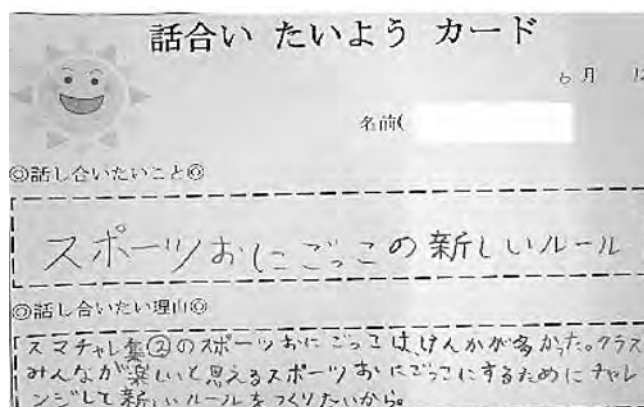 話合い たいよう カード
6月 12
名前(
◎話し合いたいこと◎
スポーツおにごっこの新しいルール
◎話し合いたい理由◎
スマチャレ集②のスポーツおにごっこは、けんかが多かった。クラス
みんなが楽しいと思えるスポーツおにごっこにするためにチャレ
ンジして新しいルールをつくりたいから。